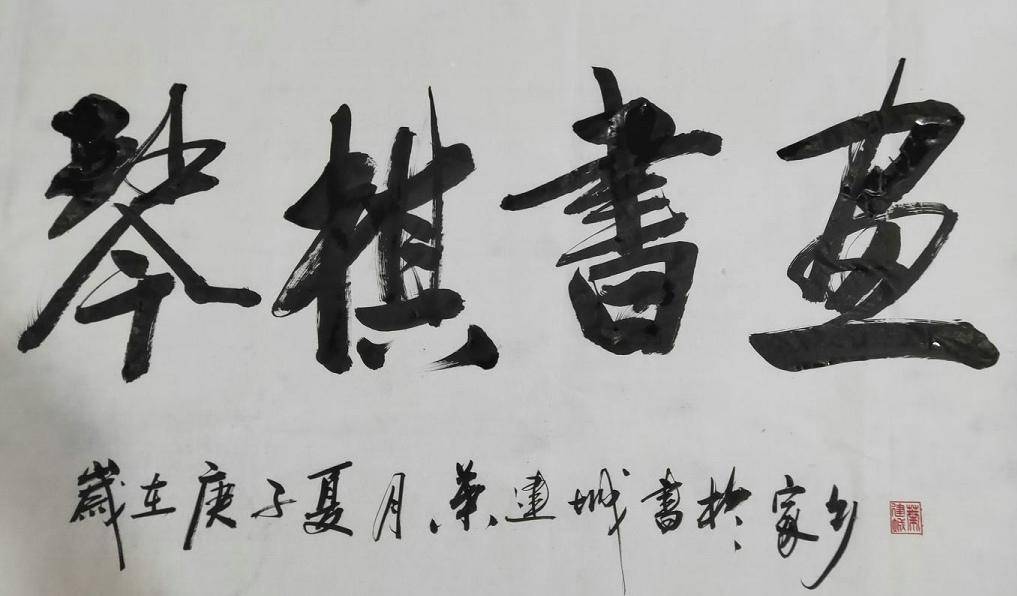 琴棋書畫
歲在庚子夏月葉建城書於家乡
葉建城